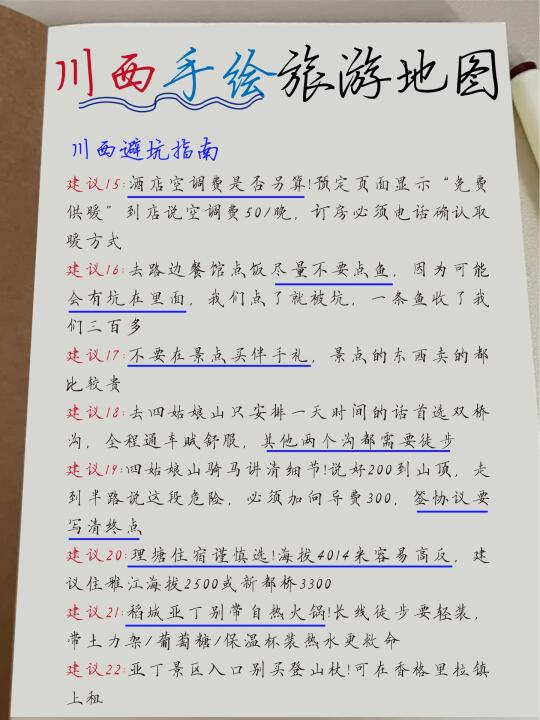 川西手绘旅游地图
川西避坑指南
建议15:酒店空调费是否另算!预定页面显示“免费
供暖”到店说空调费50/晚，订房必须电话确认取
暖方式
建议16:去路边餐馆点饭尽量不要点鱼，因为可能
会有坑在里面，我们点了就被坑，一条鱼收了我
们三百多
建议17:不要在景点买伴手礼，景点的东西卖的都
比较贵
建议18:去四姑娘山只安排一天时间的话首选双桥
沟，全程通车贼舒服，其他两个沟都需要徒步
建议19:四姑娘山骑马讲清细节!说好200到山顶，走
到半路说这段危险，必须加向导费300，签协议要
写清终点
建议20:理塘住宿谨慎选!海拔4014米容易高反，建
议住雅江海拔2500或新都桥3300
建议21:稻城亚丁别带自热火锅!长线徒步要轻装，
带士力架/葡萄糖/保温杯装热水更救命
建议22:亚丁景区入口别买登山杖!可在香格里拉镇
上租